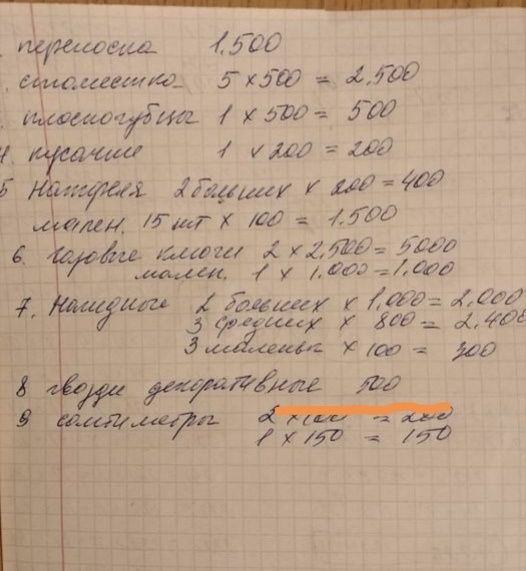 переноска 1.500
стаместка 5 × 500 = 2.500
плоскогубцы 1 × 500 = 500
4. кусачие 1 × 200 = 200
5 Нажфеля 2 больших × 200 = 400
мален. 15 шт × 100 = 1.500
6. газовые ключи 2 × 2.500 = 5000
мален. 1 × 1.000 = 1.000
7. Накидные 2 больших × 1.000 = 2.000
3 средних × 800 = 2.400
3 маленьк × 100 = 300
8 гвозди декоративные 500
9 сантиметры 2 × 100 = 200
1 × 150 = 150